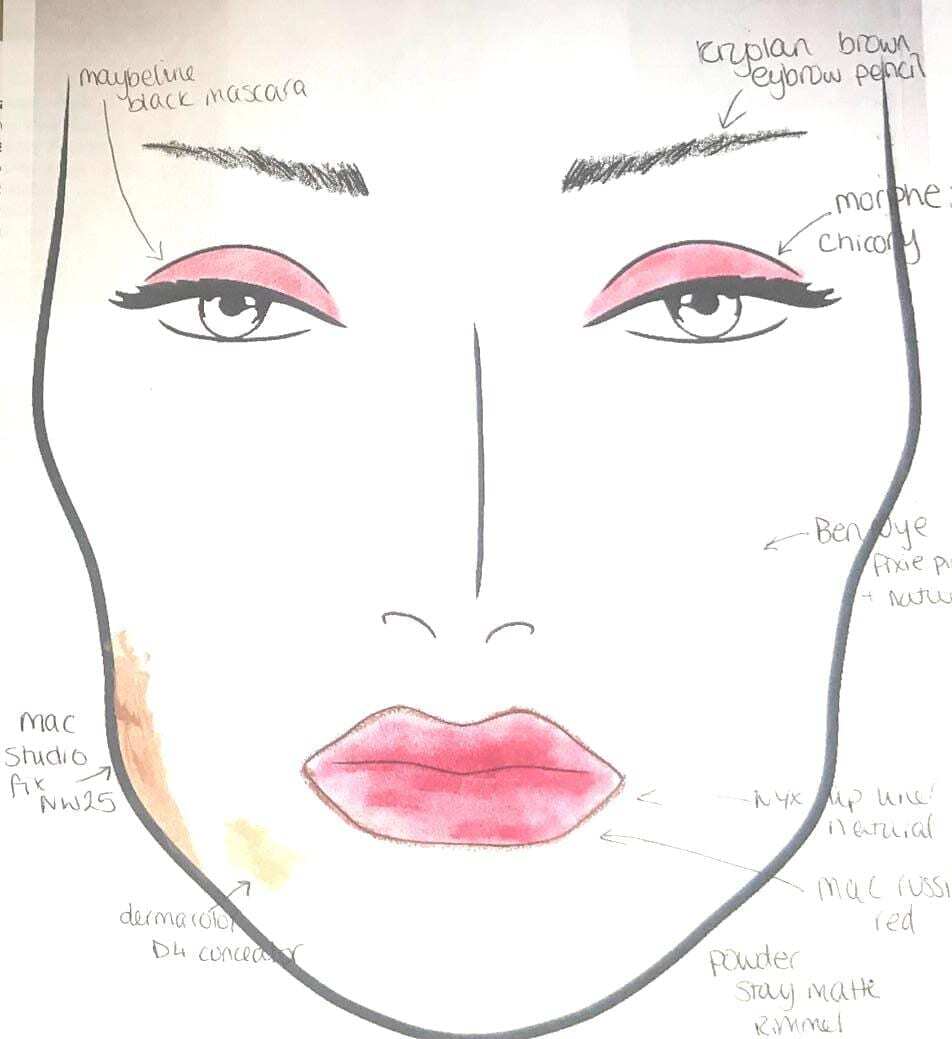 maybeline
black mascara
kryolan brown
eybrow pencil
morphe
chicory
Ben Nye
Pixie
+
mac
Studio
fix
NW25
Nyx lip
natural
mac
red
dermacolor
D4
powder
Stay matte
Rimmel